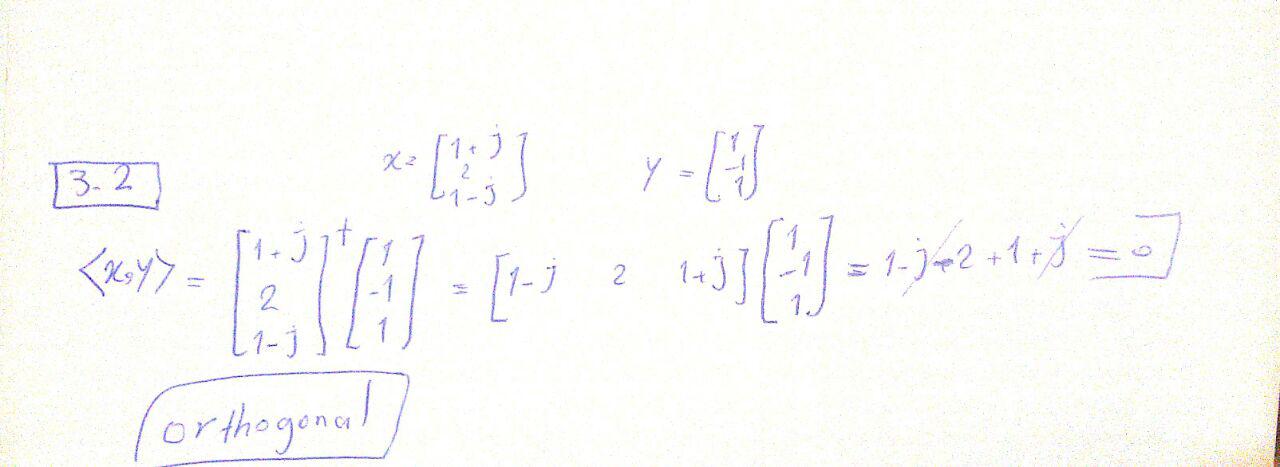 3-2 x = [1+j 2 1-j] y = [1 -1 1]
<x,y> = [1+j 2 1-j]† [1 -1 1] = [1-j 2 1+j] [1 -1 1] = 1-j-2+1+j = 0
orthogonal